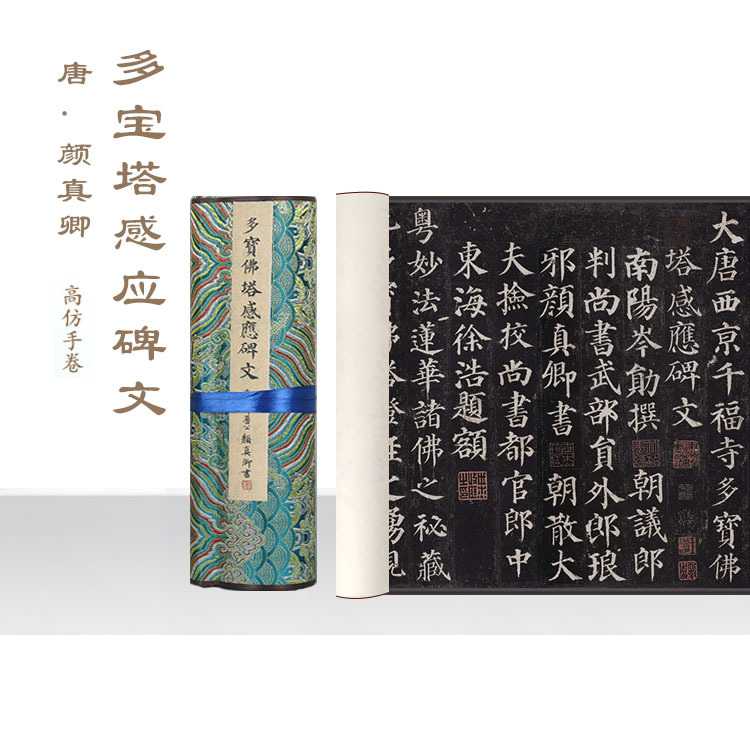 多宝塔感应碑文
唐·颜真卿
高仿手卷
多寶佛塔感應碑文
公顏真卿書
大唐西京千福寺多寶佛
塔感應碑文
南陽岑勛撰 朝議郎
判尚書武部員外郎琅
邪顏真卿書 朝散大
夫撿挍尚書都官郎中
東海徐浩題額
粵妙法蓮華諸佛之秘藏